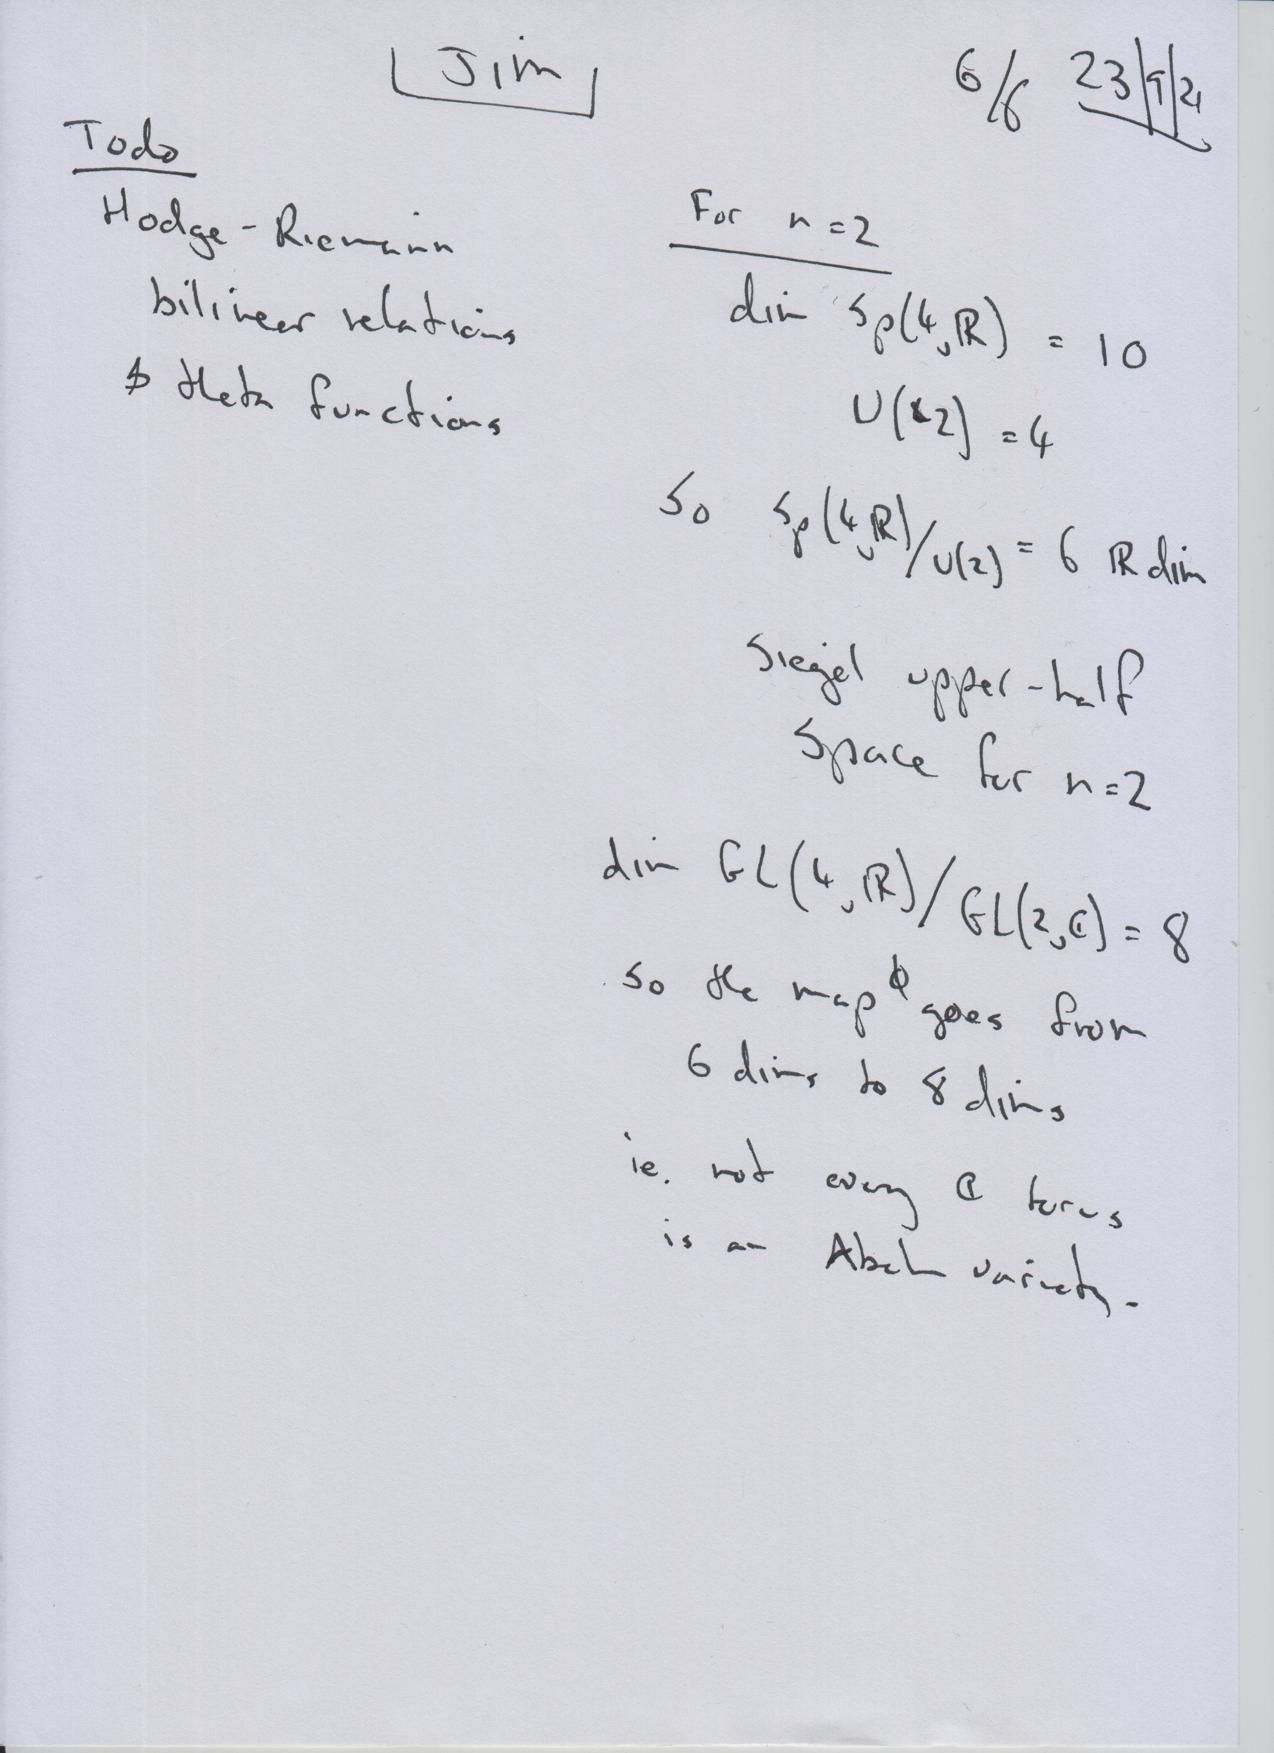 Jim
6/6 23/9/21
Todo
Hodge-Riemann
bilinear relations
& theta functions
For n=2
dim Sp(4,ℝ) = 10
U(2) = 4
So Sp(4,ℝ)/U(2) = 6 ℝ dim
Siegel upper-half
space for n=2
dim GL(4,ℝ)/GL(2,ℂ) = 8
so the map ϕ goes from
6 dims to 8 dims
ie. not every ℂ torus
is an Abelian variety.